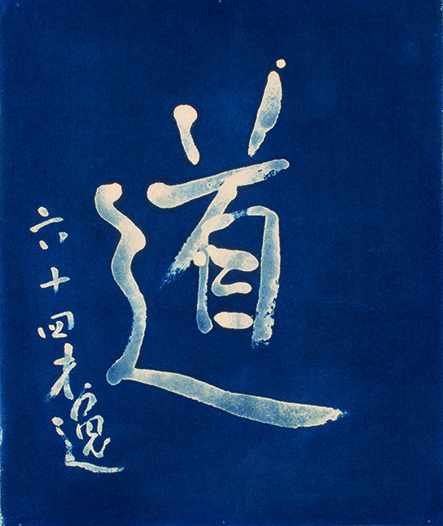 道
六十四才逸